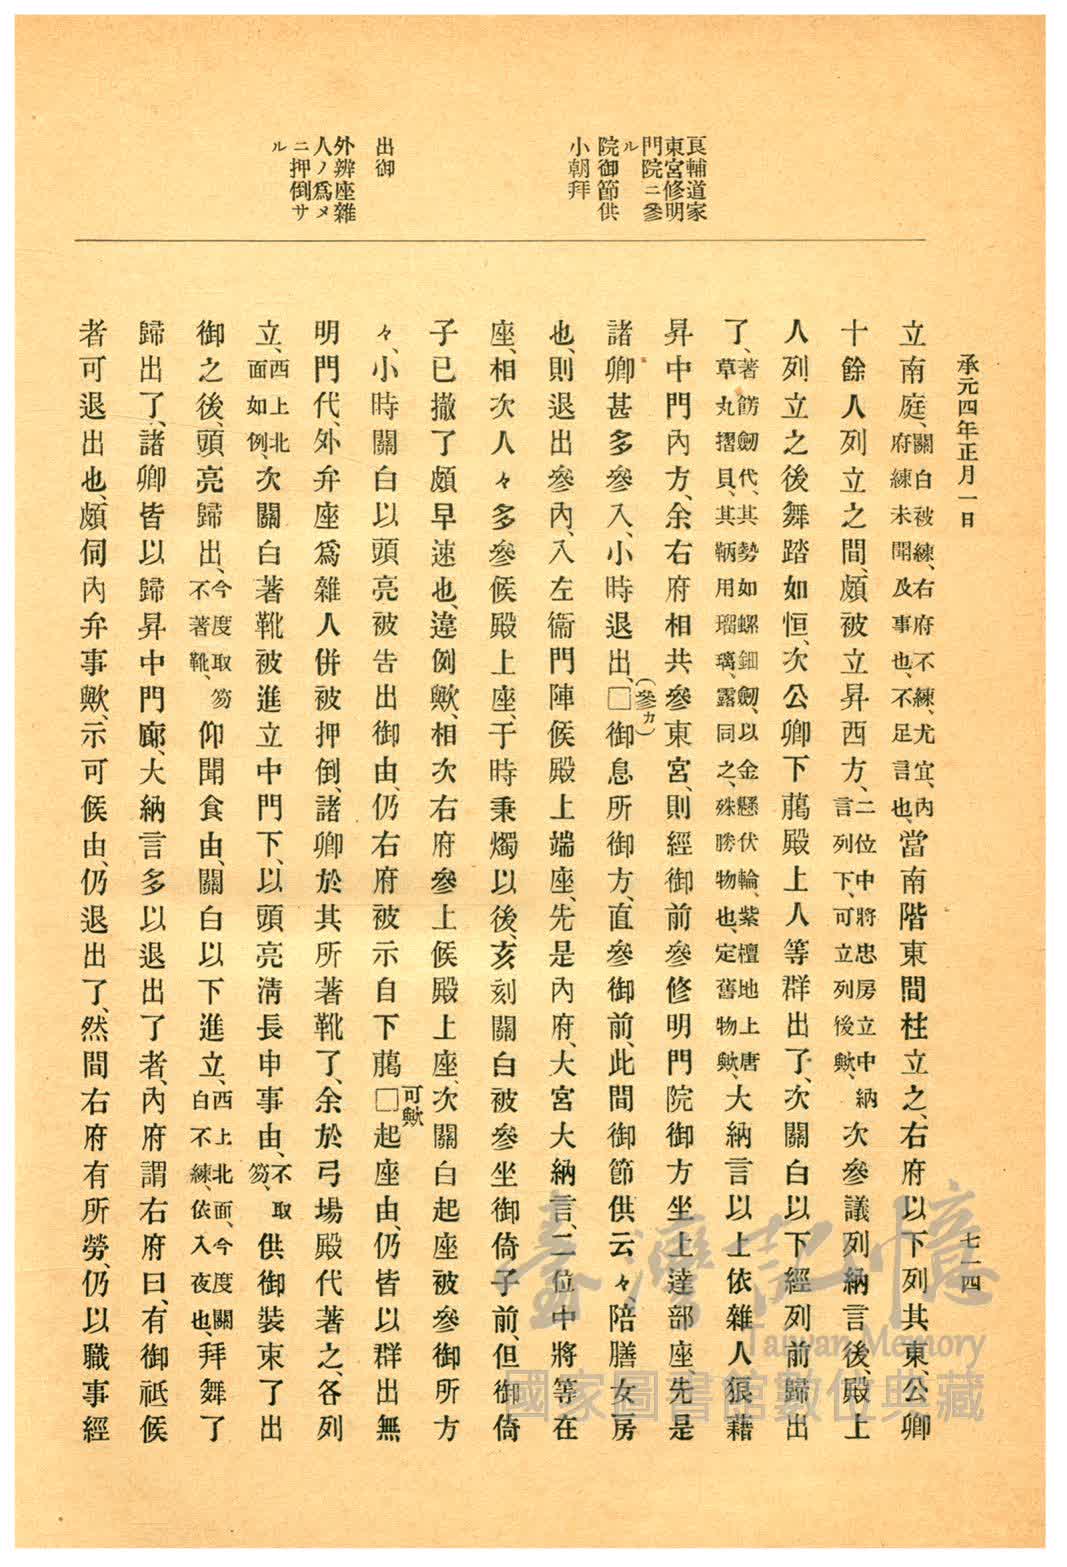 承元四年正月一日
七一四
良輔道家
東宮修明
門院ニ參
ル
院御節供
小朝拜
出御
外辨座雜
人ノ爲メ
ニ押倒サ
ル
立南庭、關白被練、右府不練、尤宜、內府練未聞及事也、不足言也、當南階東間柱立之、右府以下列其東、公卿
十餘人列立之間、頗被立昇西方、二位中將忠房立中納言列下、可立列後歟、次參議列納言後、殿上
人列立之後舞踏如恒、次公卿下﨟殿上人等群出了、次關白以下經列前歸出
了、著餝劒代、其勢如螺鈿劒、以金懸伏輪、紫檀地上唐草丸摺貝、其鞆用瑠璃、露同之、殊勝物也、定舊物歟、大納言以上依雜人狼藉
昇中門內方、余右府相共參東宮、則經御前參修明門院御方坐上達部座先是
諸卿甚多參入、小時退出、□(參カ)御息所御方、直參御前、此間御節供云々、陪膳女房
也、則退出參內、入左衞門陣候殿上端座、先是內府、大宮大納言、二位中將等在
座、相次人々多參候殿上座、于時秉燭以後、亥刻關白被參坐御倚子前、但御倚
子已撤了頗早速也、違例歟、相次右府參上候殿上座、次關白起座被參御所方
々、小時關白以頭亮被告出御由、仍右府被示自下﨟□(可歟)起座由、仍皆以群出無
明門代、外弁座爲雜人併被押倒、諸卿於其所著靴了、余於弓場殿代著之、各列
立、西上北面如例、次關白著靴被進立中門下、以頭亮淸長申事由、不取笏、供御裝束了出
御之後、頭亮歸出、今度取笏不著靴、仰聞食由、關白以下進立、西上北面、今度關白不練、依入夜也、拜舞了
歸出了、諸卿皆以歸昇中門廊、大納言多以退出了者、內府謂右府曰、有御祗候
者可退出也、頗伺內弁事歟、示可候由、仍退出了、然間右府有所勞、仍以職事經
臺灣記憶
Taiwan Memory
國家圖書館數位典藏